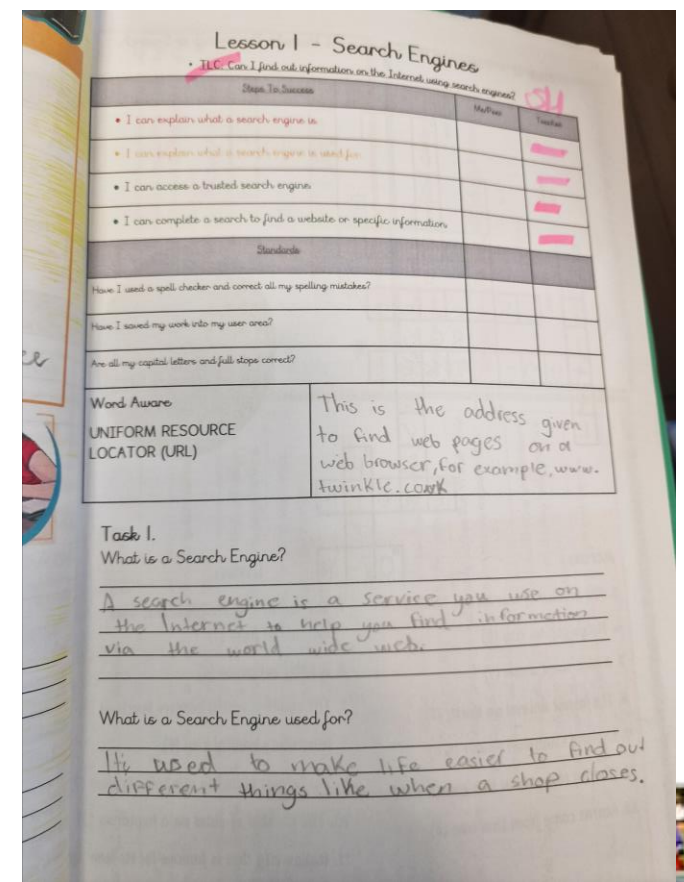 Lesson 1 - Search Engines
• TLC: Can I find out information on the Internet using search engines?
SH
Steps To Success
Me/Peer
Teacher
• I can explain what a search engine is
• I can explain what a search engine is used for
• I can access a trusted search engine
• I can complete a search to find a website or specific information
Standards
Have I used a spell checker and correct all my spelling mistakes?
Have I saved my work into my user area?
Are all my capital letters and full stops correct?
Word Aware
UNIFORM RESOURCE
LOCATOR (URL)
This is the address given
to find web pages on a
web browser, for example, www.
twinkle.co
Task 1.
What is a Search Engine?
A search engine is a service you use on
the Internet to help you find information
via the world wide web.
What is a Search Engine used for?
used to make life easier to find out
different things like when a shop closes.